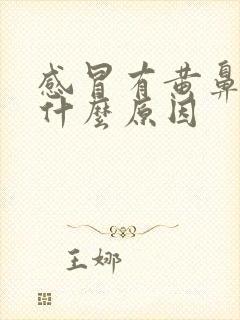 感冒有黄鼻
什麼原因
王娜